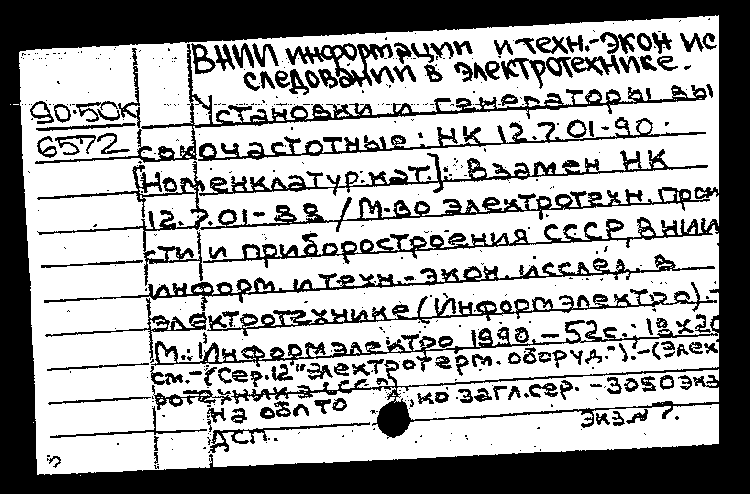 ВНИИ информации и техн.-экон ис
следовании в электротехнике.
90-50К Установки и генераторы вы
6572 сокочастотные: НК 12.7.01-90:
[Номенклатур. кат.]: Взамен НК
12.7.01-88 / М-во электротехн. пром
сти и приборостроения СССР, ВНИИ
информ. и техн.-экон. исслед. в
электротехнике (Информэлектро).-
М.: Информэлектро, 1990.-52с.; 19х20
см.-(Сер.12 "Электротерм. оборуд.").-(Элект
ротехника СССР)
на обл то , ко загл. сер. -3050 экз
ДСП. Экз.№7.